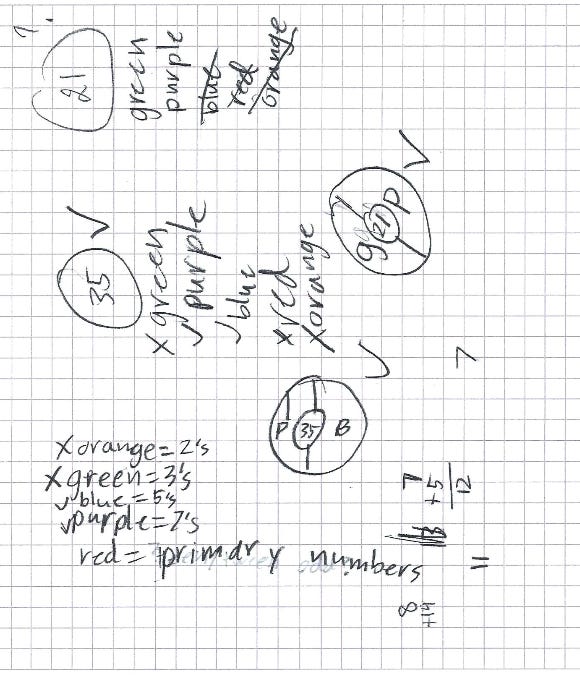 21
green
purple
blue
red
orange
35 ✓
x green
✓ purple
✓ blue
x red
x orange
g 21 p ✓
P 35 B ✓
x orange = 2's
x green = 3's
✓ blue = 5's
✓ purple = 7's
red = primary numbers
7
+5
12
8
=
7